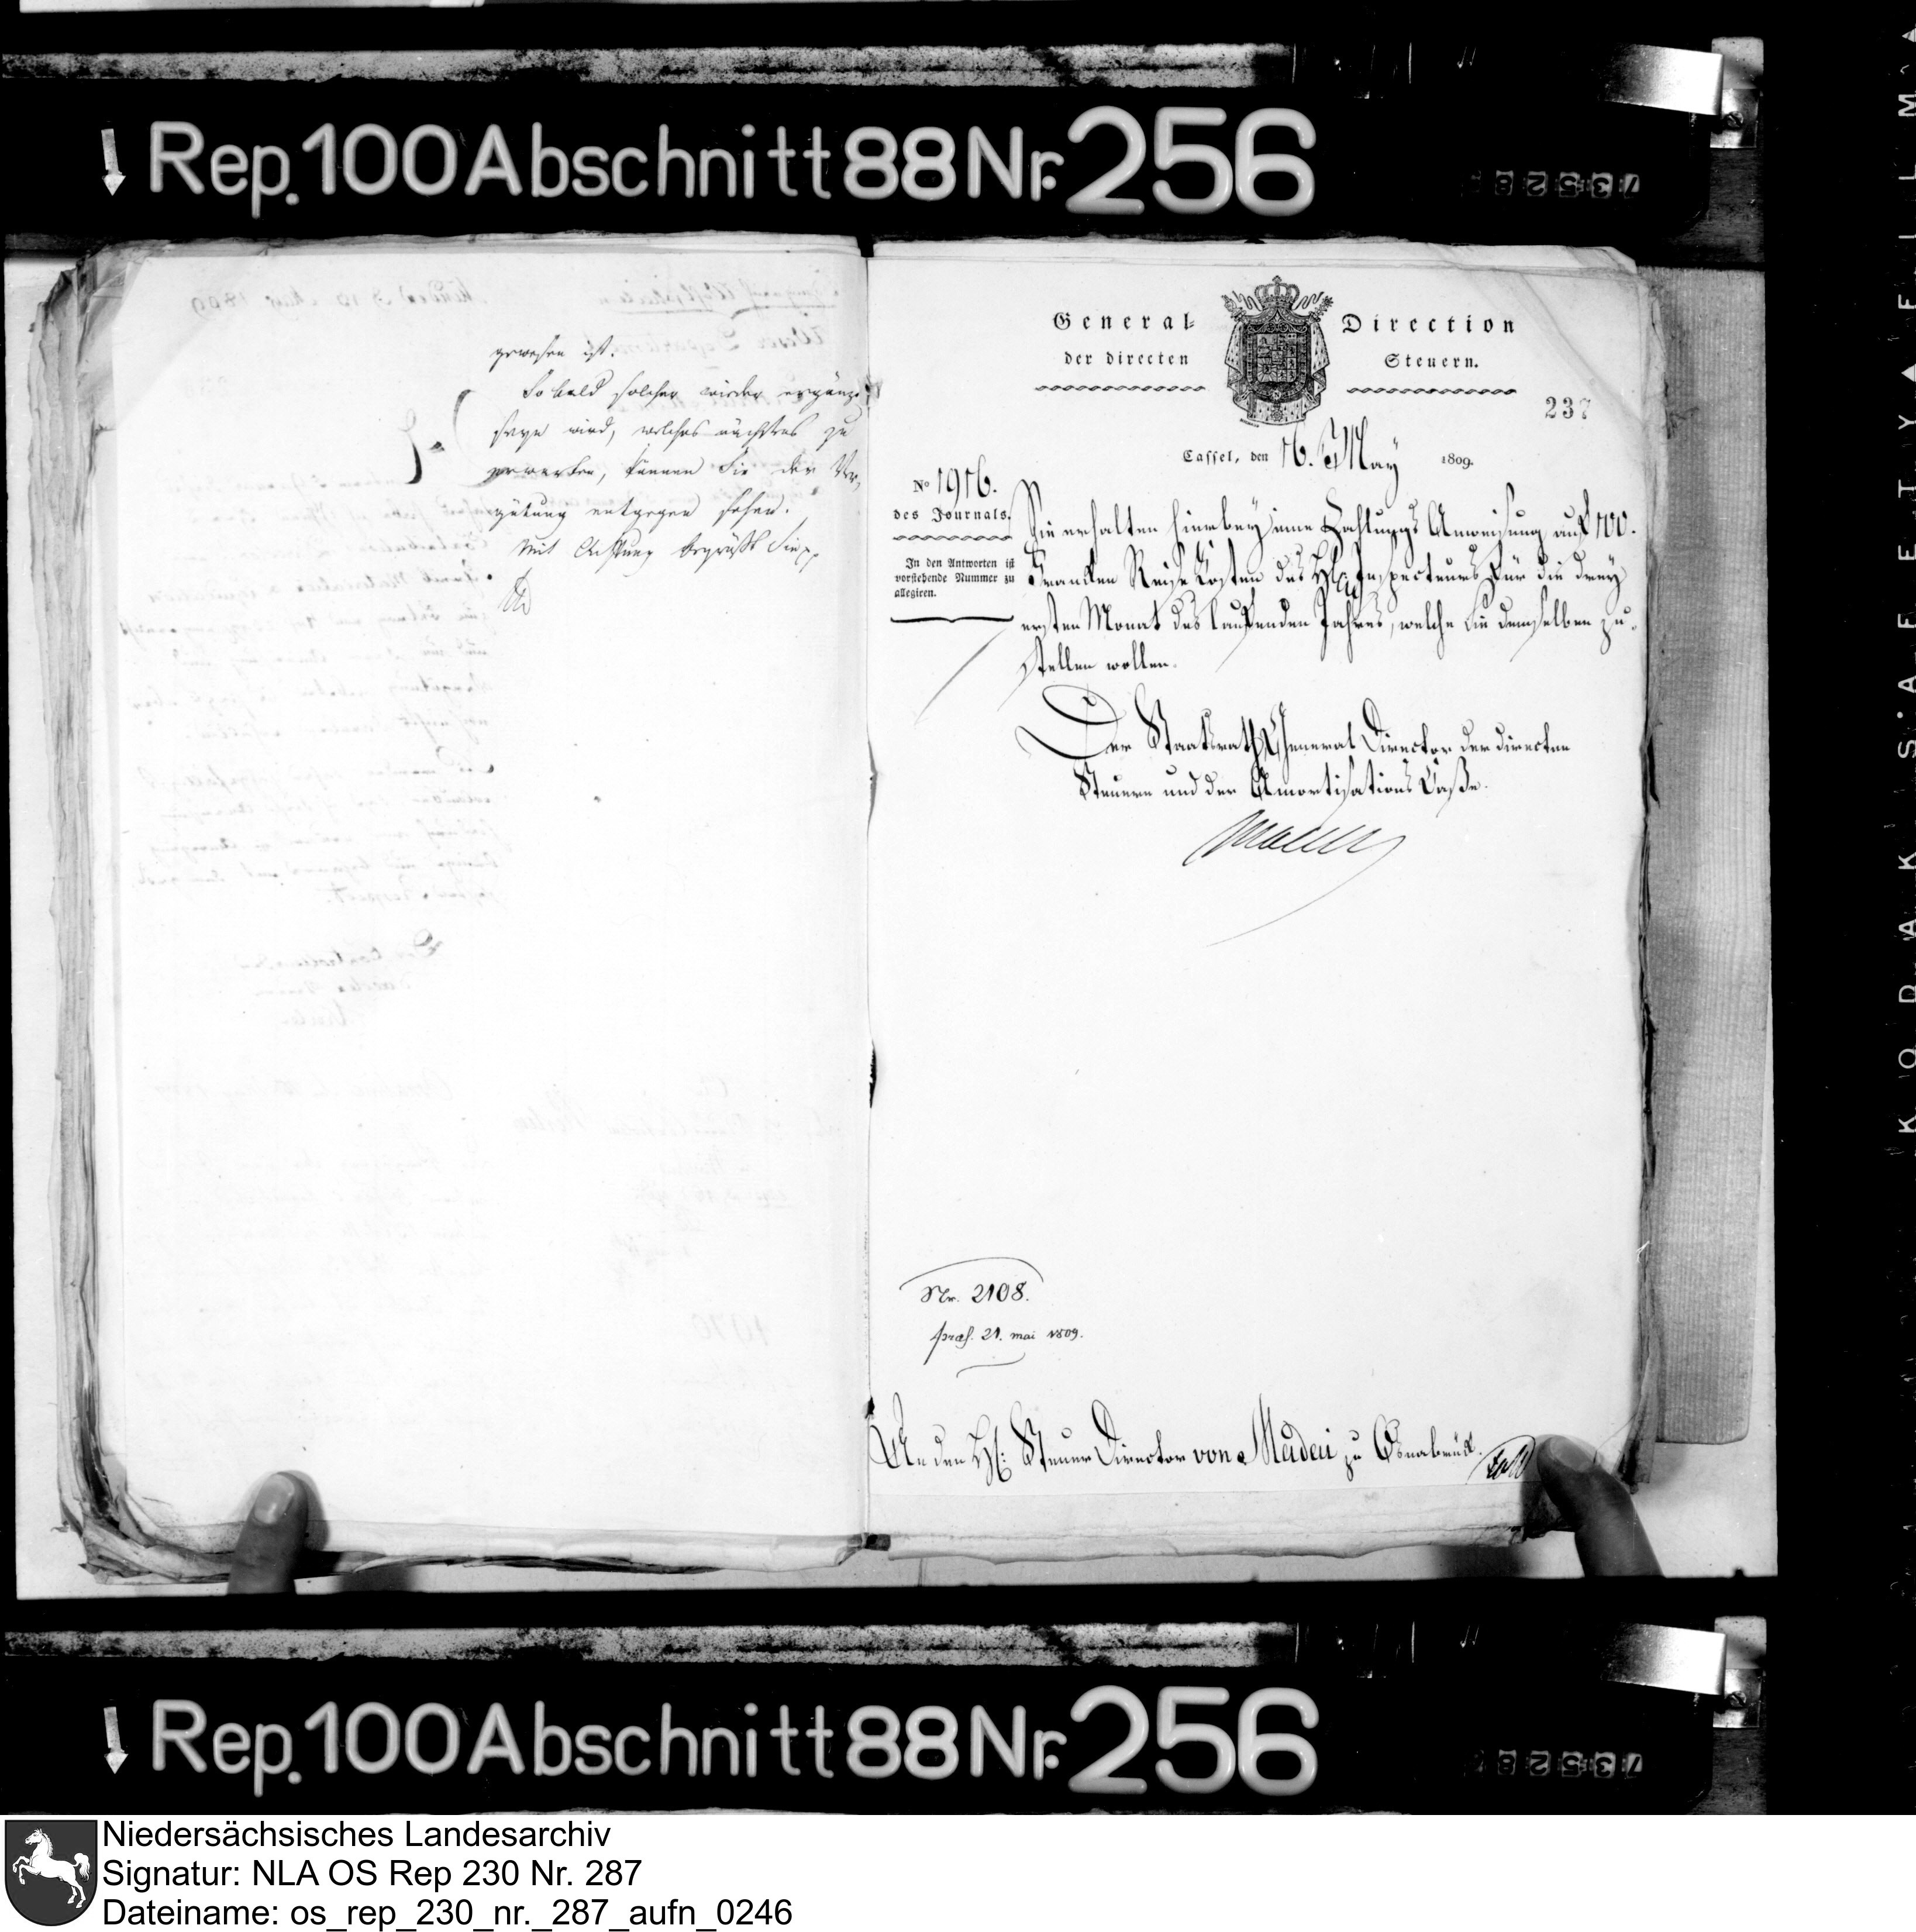 Rep. 100 Abschnitt 88 Nr. 256
gewesen ist.
So bald solcher wieder ergänzt
seyn wird, welches nächstes zu
erwarten, können Sie der Ver-
gütung entgegen sehen.
Mit Achtung begrüßt Sie
General- Direction
der directen Steuern.
237
Cassel, den 16. May 1809.
No 1916.
des Journals.
In den Antworten ist
vorstehende Nummer zu
allegiren.
Sie erhalten hierbey eine Zahlungs Anweisung auf 100.
Franken Reise Kosten des H. Inspecteurs für die drey
ersten Monat des laufenden Jahres, welche Sie demselben zu-
stellen wollen.
Der Staatsrath General Director der directen
Steuern und der Amortisations Casse.
Nr. 2108.
praes. 21. mai 1809.
An den H: Steuer Director von Müden zu Osnabrück.
Rep. 100 Abschnitt 88 Nr. 256
KODAK SAFETY FILM
Niedersächsisches Landesarchiv
Signatur: NLA OS Rep 230 Nr. 287
Dateiname: os_rep_230_nr._287_aufn_0246